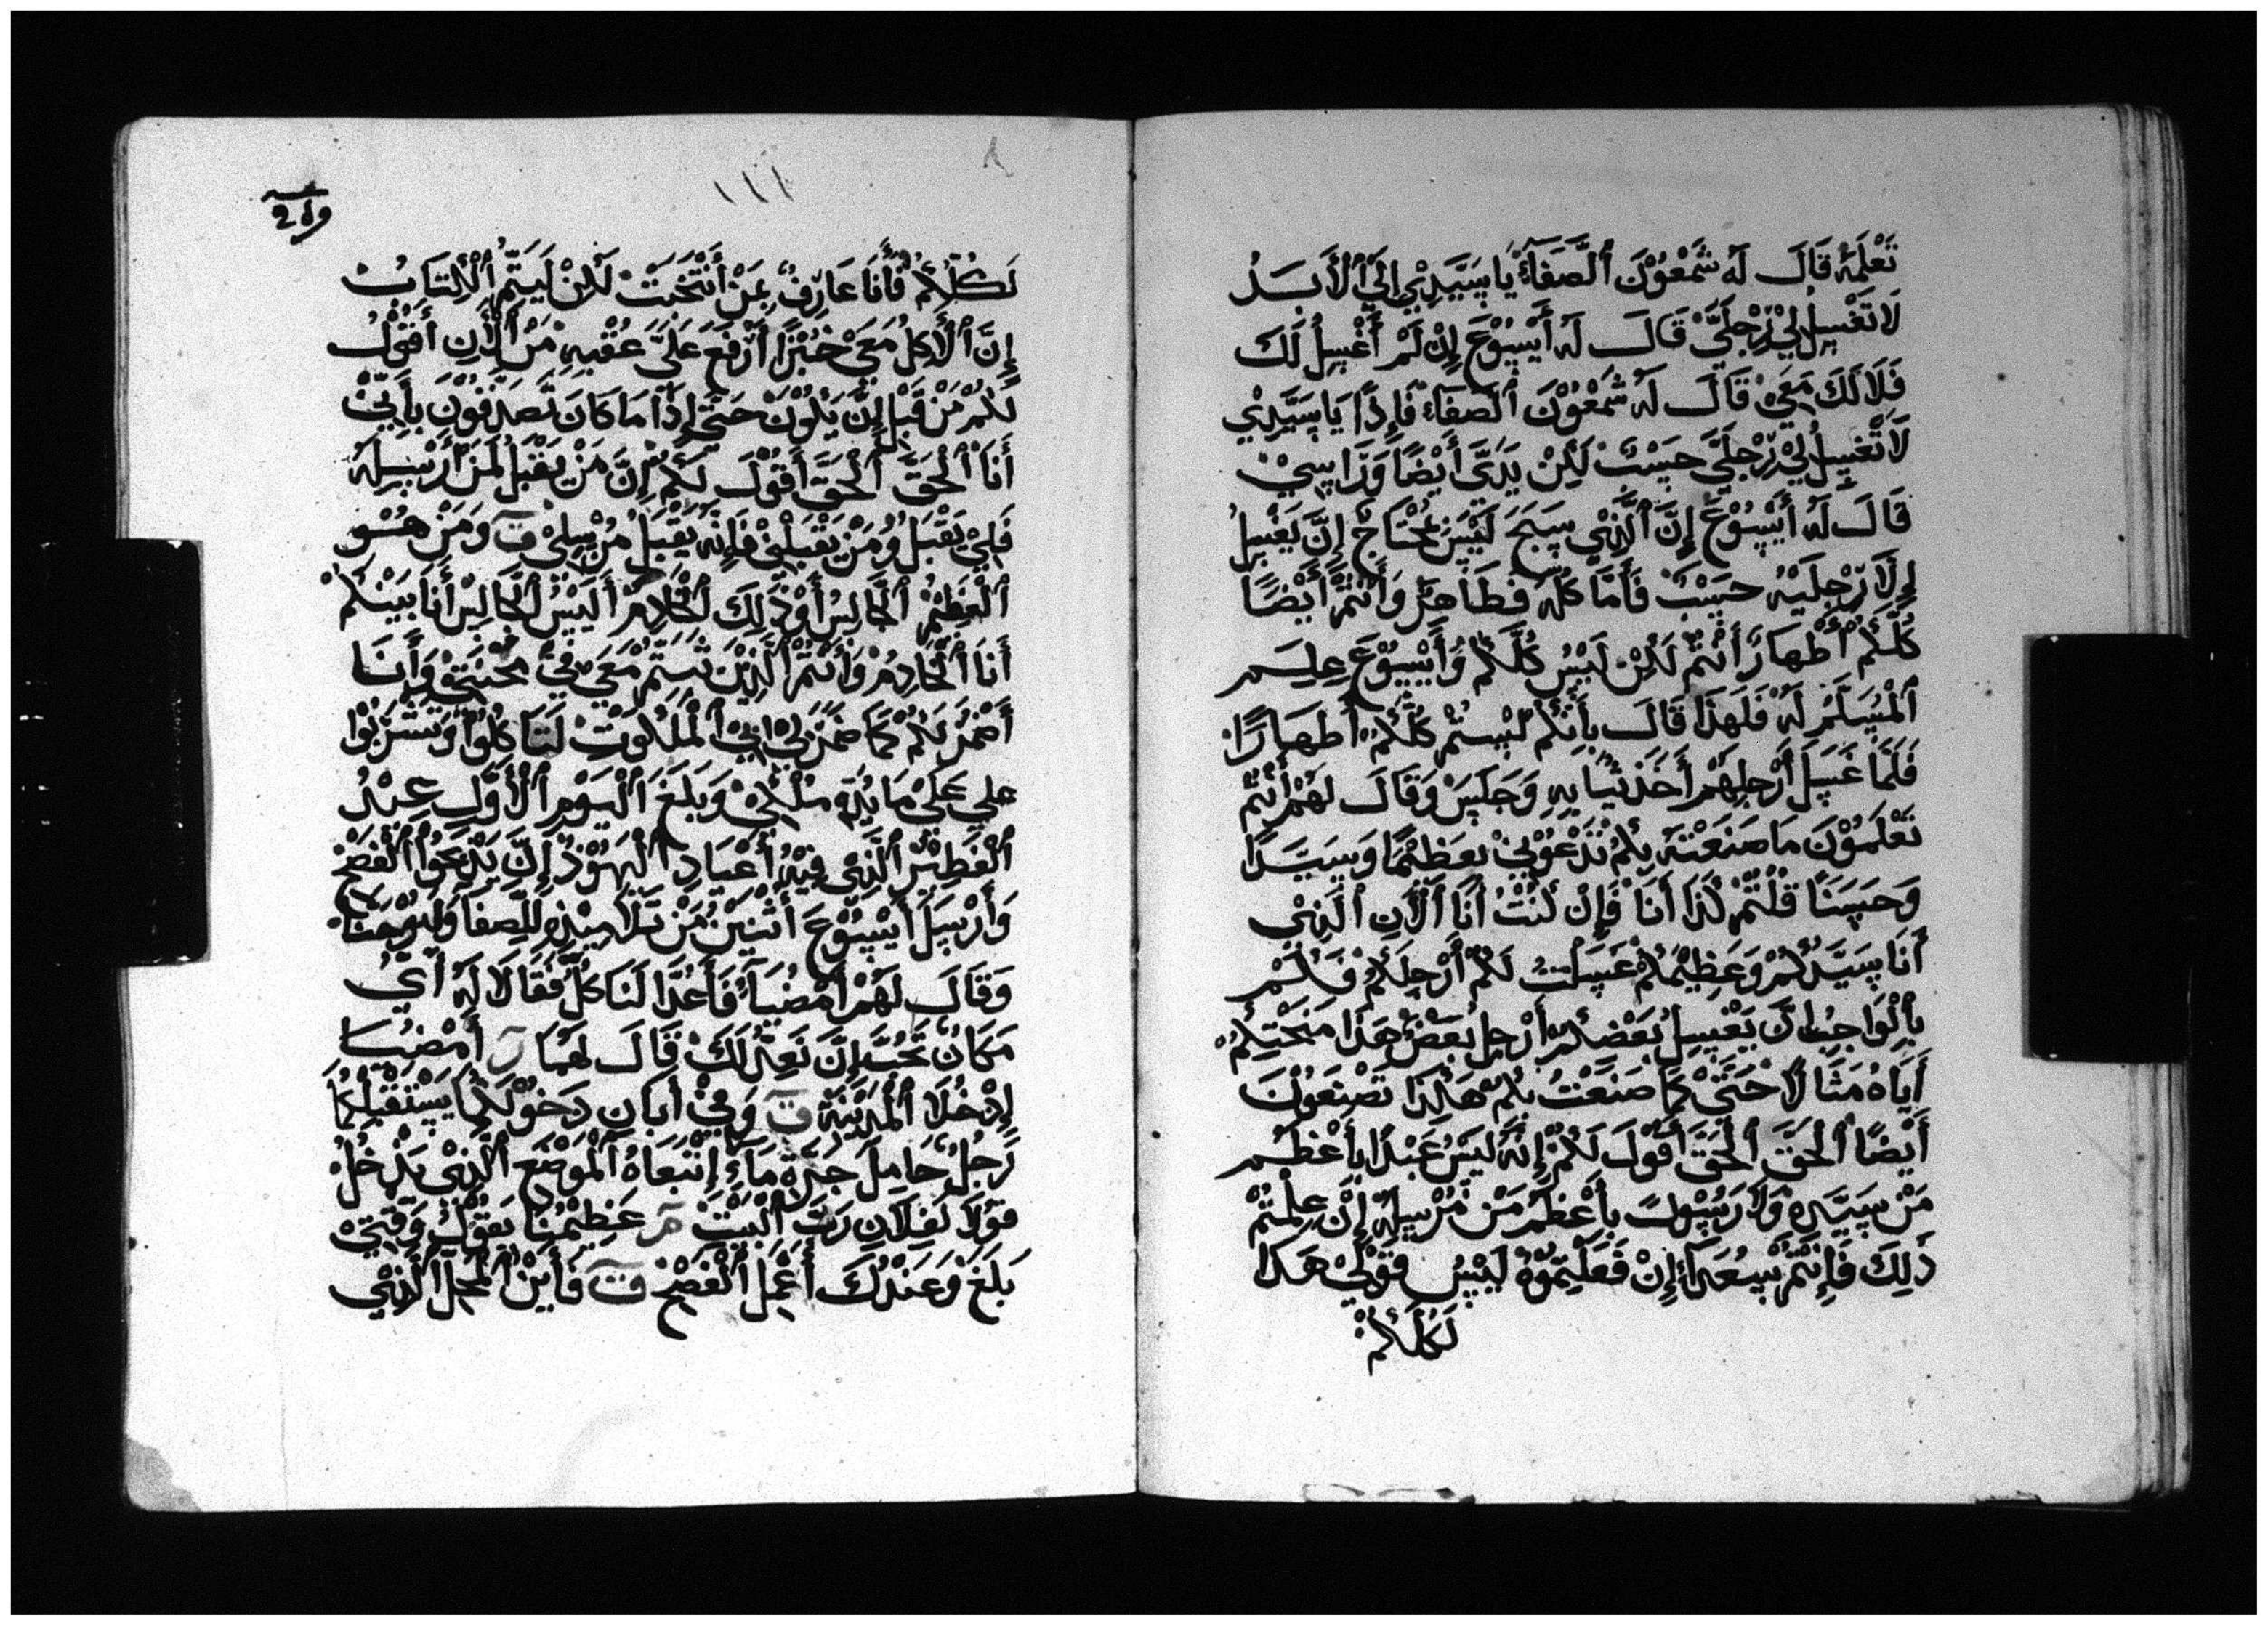 تَعْلَمُهُ قَالَ لَهُ شَمْعُوْنَ ٱلصَّفَآءُ يَا سَيِّدِيْ اِلَيْ ٱلْأَبَدُ
لَا تَغْسِلُ لِيْ رِّجْلَيَّ قَالَ لَهُ أَيْسُوْعَ إِنْ لَمْ أَغْسِلُ لَكَ
فَلَا لَكَ مَعِيْ قَالَ لَهُ شَمْعُوْنَ ٱلصَفَاءُ فَإِذًا يَا سَيِّدِيْ
لَا تَغْسِلُ لِيْ رِّجْلَيَّ حَسْبُ لَكِنْ يَدَيَّ أَيْضًا وَرَاسِيْ
قَالَ لَهُ أَيْسُوْعَ إِنَّ ٱلَّذِيْ سَبَحَ لَيْسَ مُحْتَاجٌ إِنَّ يَغْسِلُ
إِلَّا رِّجْلَيْهِ حَسْبُ فَأَمَّا كُلَّهُ فَطَاهِرٌ وَأَنْتُمْ أَيْضًا
كُلَّكُمْ أَطْهَارَ أَنْتُمْ لَكِنْ لَيْسَ كُلَّكُمْ وَأَيْسُوْعَ عِلِمَ
ٱلْمُسَلِّمُ لَهُ فَلَهَذَا قَالَ بِأَنَّكُمْ لَيْسَتُمْ كُلُّكُمْ أَطْهَارًا
فَلَمَّا غَسَلَ أَرْجِلِهُمْ أَخَذَ ثِيَابِهِ وَجَلَسَ وَقَالَ لَهُمْ أَنْتُمْ
تَعْلَمُوْنَ مَا صَنَعْتَهُ بِكُمْ تَدْعُوْنِيْ بِعَظِيْمًا وَبِسَيِّدًا
وَحَسَنًا قُلْتُمْ كَذَا أَنَا فَإِنْ كُنْتُ أَنَا ٱلْأَنِ ٱلَّذِيْ
أَنَا سَيِّدُكُمْ وَعَظِيْمُكُمْ غَسَلْتُ لَكُمْ أَرْجِلَكُمْ فَكَمْ
بِٱلْوَاجِبُ اَنَّ يَغْسِلُ بَعْضُكُمْ أَرْجِلُ بَعْضٍ هَذَا مَنَحْتُكُمْ
أَيَاهُ مَثَالًا حَتَّيْ كَمَا صَنَعْتُ بِكُمْ هَكَذَا تَصْنَعُوْنَ
أَيْضًا ٱلْحَقَّ ٱلْحَقَّ أَقُوْلَ لَكُمْ إِنَّهُ لَيْسَ عَبْدًا بِأَعْظَمْ
مَنْ سَيِّدِهِ وَلَا رَسُوْلٌ بِأَعْظَمُ مَنْ مُرْسِلِهُ إِنَّ عِلِمْتُمْ
ذَلِكَ فَإِنْتُمْ سُعَدَآءُ إِنْ فَعَلْتِمُوْهُ لَيْسَ قَوْلِيْ هَذَا
لَكُلَّكُمْ
لَكُلَّكُمْ فَأَنَا عَارِفٌ بِمَنْ أَنْتَخَبَتْ لَكِنْ لِيَتِمَّ ٱلْكِتَابُ
إِنَّ ٱلْأَكِلُ مَعِيْ خُبْزًا أَرْفَعَ عَلَيَّ عَقْبِهِ مَنْ ٱلْأَنِ أَقُوْلُ
لَكُمْ مَنْ قَبْلِ إِنَّ يَكُوْنَ حَتَّي إِذَا مَا كَانَ تَصَدِقُوْنَ بِأَنِّيْ
أَنَا ٱلْحَقَّ ٱلْحَقَّ أَقُوْلَ لَكُمْ إِنَّ مَنْ يَقْبَلُ لَمَنْ أَرْسِلَهُ
فَلِيْ يَقْبَلُ وَمَنْ يَقْبَلْنِيْ فَإِنَّهُ يَقْبَلُ مُرْسِلِيْ ق وَمَنْ هُوَ
ٱلْعَظِيْمُ ٱلْجَالِسُ أَوْ ذَلِكَ ٱلْخَادِمُ أَلَيْسَ ٱلْجَالِسْ أَنَا بَيْنَكُمْ
أَنَا ٱلْخَادِمُ وَأَنْتُمْ ٱلَّذِيْنَ ثَبَتُّمْ مَعِيْ فِيْ مِحْنَتِيْ وَأَنَا
أَضْمُرُ لَكُمْ كَمَا ضَمَرَ لِيْ ابِيْ ٱلْمَلَكُوْتِ لَتَاكُلُوْا وَتَشْرَبُوْا
عَلِي عَلَيْ مَايُدَهِ مَلْكِيْ وَبَلَغَ ٱلْيَوْمِ ٱلْأَوَّلِ عِنْدُ
ٱلْفَطِيْرِ ٱلَّذِيْ فِيْهُ أَعْيَادِ ٱلْيَهُوْدُ إِنَّ يَذْبَحُوْا ٱلْفَصْحَ
وَأَرْسَلَ أَيْسُوْعَ أَثْنَيْنِ مَنْ تَلَامِيْذِهِ لِلصَّفَا وَلِيُوْحَنَّا
وَقَالَ لَهُمْ أَمْضِيَآ فَأَعُدَّا لَنَا كُلَّ فَقَالَا لَهُ أَيُ
مَكَانٌ تُحِبَّ إِنَّ نَعِدَّ لَكَ قَالَ لَهُمَا ر أَمْضِيَا
إِدْخُلَا ٱلْمَدِيْنَةَ ق وَفِيْ أَبَانِ دَخُوْلَكُمَا يَسْتَقْبِلُكُمَا
رَّجُلٌ حَامِلَ جَرَّةَ مَآءٍ إِتْبَعَاهُ ٱلْمَوْضِعِ ٱلَّذِيْ يَدْخُلُ
قَوْلَا لَفَلَانِ رَبَّ ٱلْبَيْتْ م عَظِيْمُنَا يَقُوْلُ وَقْتِيْ
بَلَغَ وَعَنْدُكَ أَعْمَلِ ٱلْفَصِحْ ق فَأَيْنَ ٱلْمَحِلُّ ٱلَّذِيْ